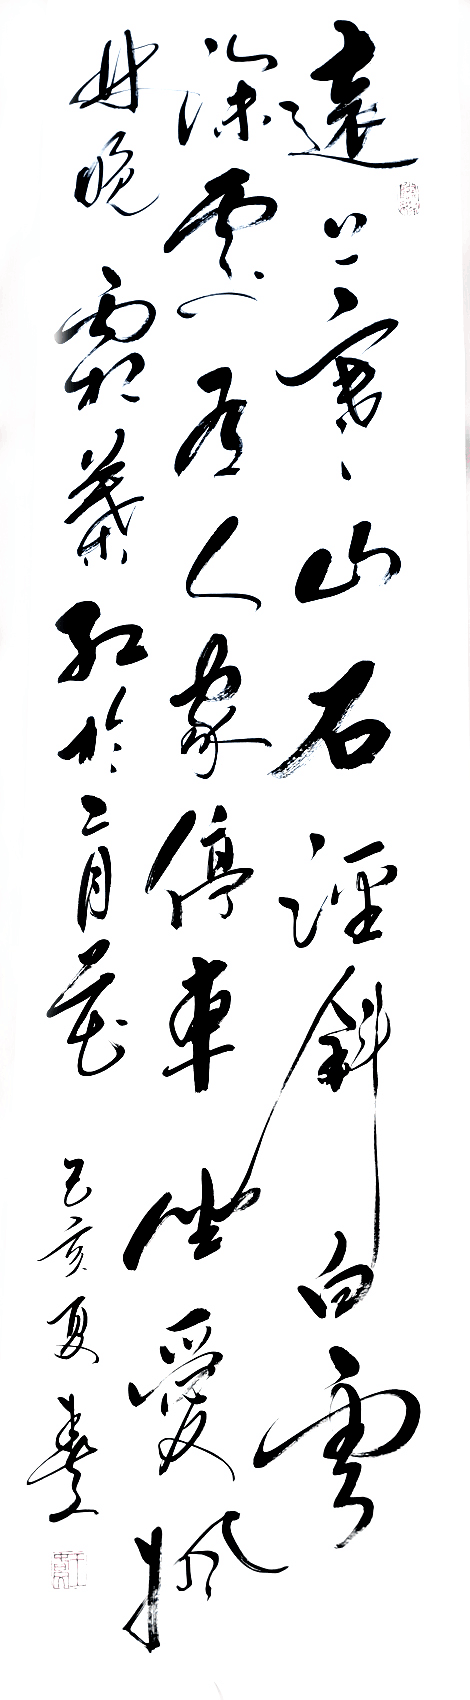 遠上寒山石徑斜白雲
深處有人家停車坐愛楓
林晚霜葉紅於二月花 己亥夏